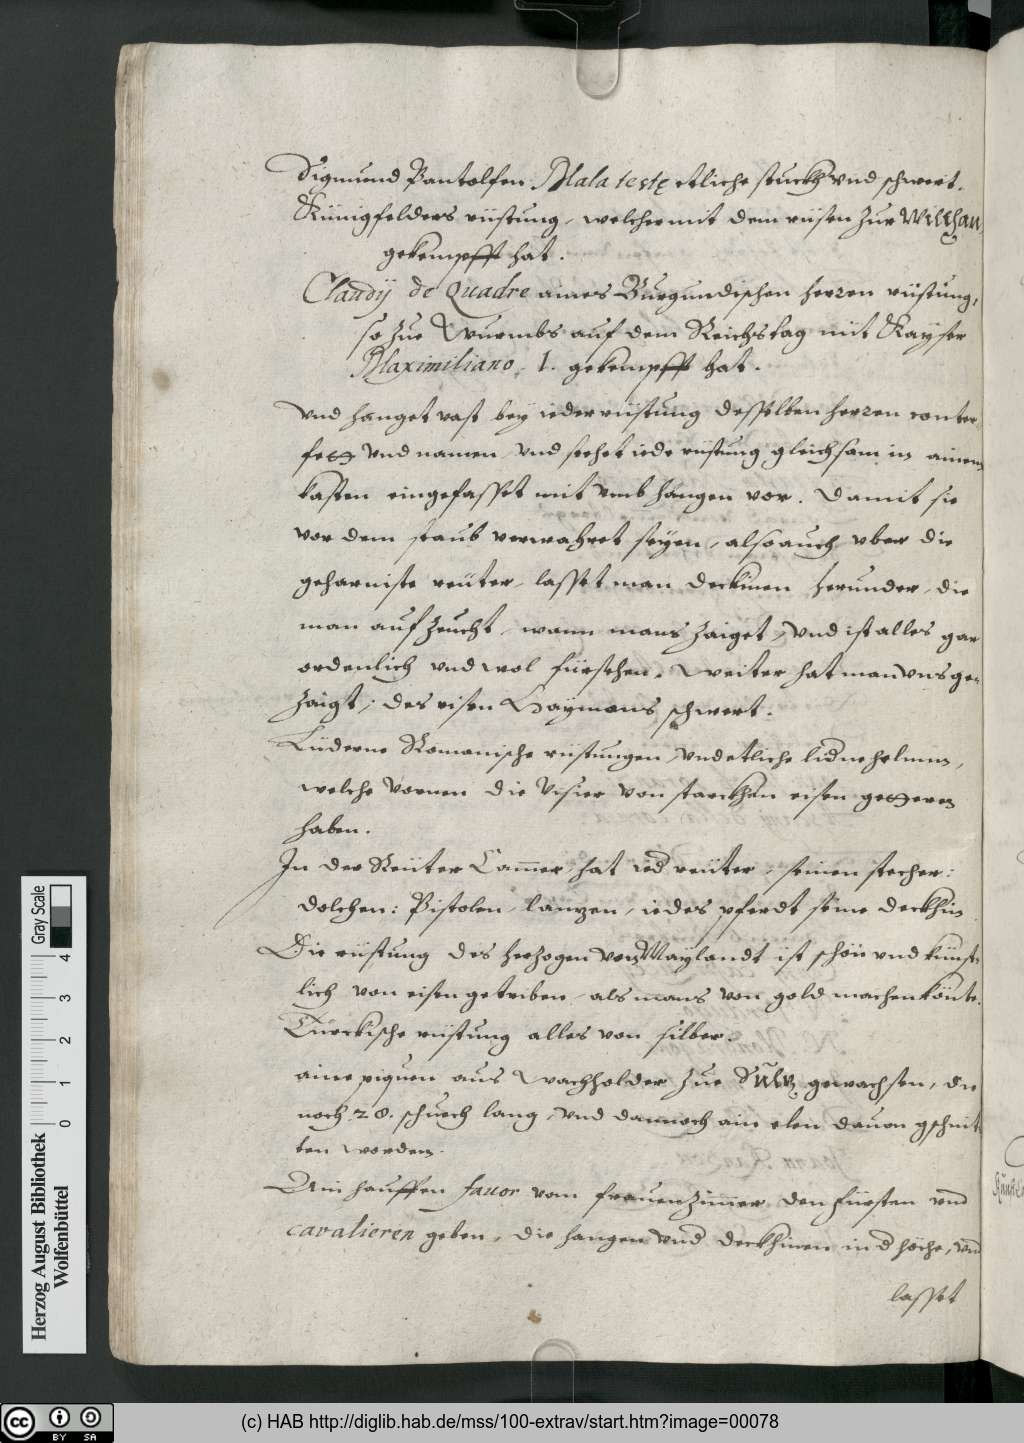 Sigmund Pantolfen Malateste etliche stuckh vnd schwert.
Künigfelders rüstung, welcher mit dem risen zur Wilthan,
gekempfft hat.
Claudij de Quadre aines Burgundischen herren rüstung,
so zue Wurmbs auf dem Reichstag mit Kayser
Maximiliano. 1. gekempfft hat.
vnd hanget vast bey ieder rüstung desselben herren conter,
fett vnd namen, vnd stehet iede rüstung gleichsam in ainem
kasten eingefasset mit vmbhängen vor. Damit sie
vor dem staub verwahret seyen, also auch vber die
geharniste reüter, lasset man deckinen herunder, die
man aufzeucht, wann mans zaiget, vnd ist alles gar
ordenlich vnd wol fürsehen. Weiter hat man vns ge-
zaigt, des risen Haymons schwert.
Lüderne Romanische rüstungen, vnd etliche lidne helmen,
welche vornen die Visier von starckhen eisen getteren
haben.
In der Reüter Camer, hat ied reüter, seinen stecher:
dolchen: Pistolen, lanzen, iedes pferdt seine deckhin
Die rüstung des herzogen von Maylandt ist schön vnd künst-
lich von eisen getriben, als mans von gold machen könte.
Türckische rüstung alles von silber.
aine piquen aus Wachholder zue Sultz gewachsen, die
noch 28. schuech lang, vnd dannoch ain elen dauon gschnit-
ten worden.
Ain hauffen fauor vom frauenzimer den fürsten vnd
cavalieren geben, die hangen vnd deckhinen in d höhe, vnd
lasset
Herzog August Bibliothek
Wolfenbüttel
Gray Scale
0 1 2 3 4
cc BY SA
(c) HAB http://diglib.hab.de/mss/100-extrav/start.htm?image=00078